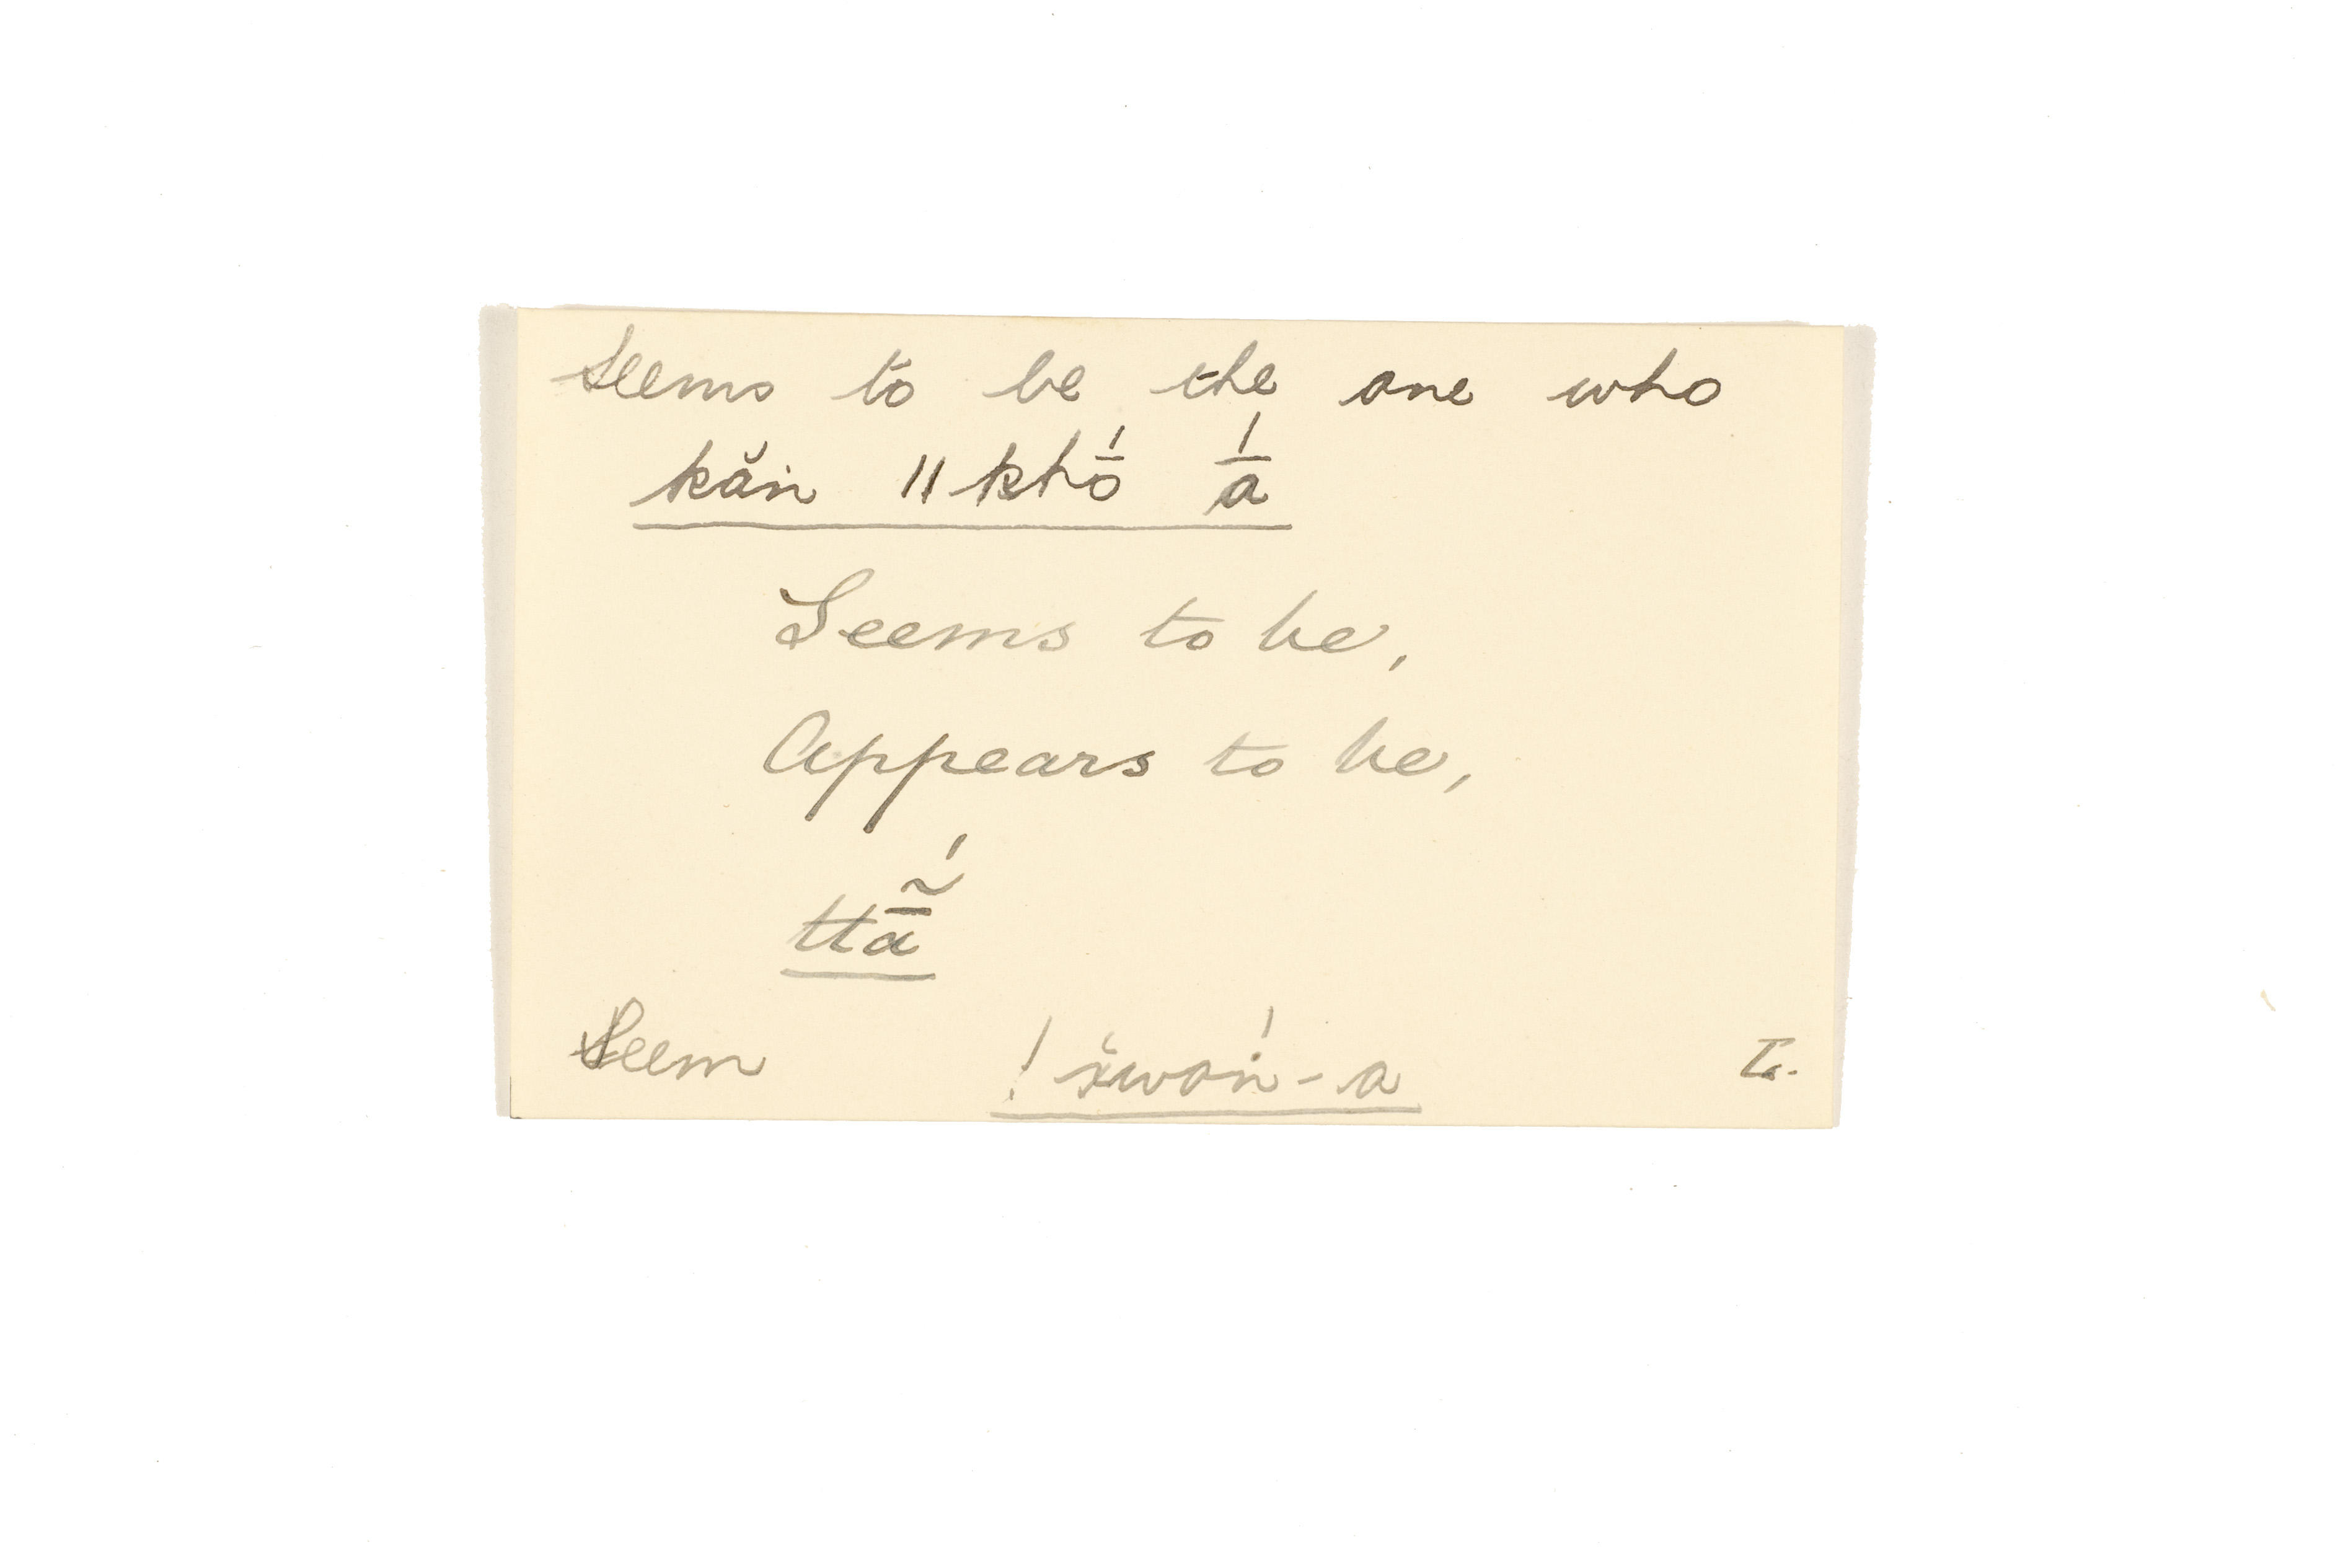 Seems to be the one who
kăṅ ǁkhṓ ā́
Seems to be,
Appears to be,
ttā̃́
Seem ! χ̆wáṅ-a L.